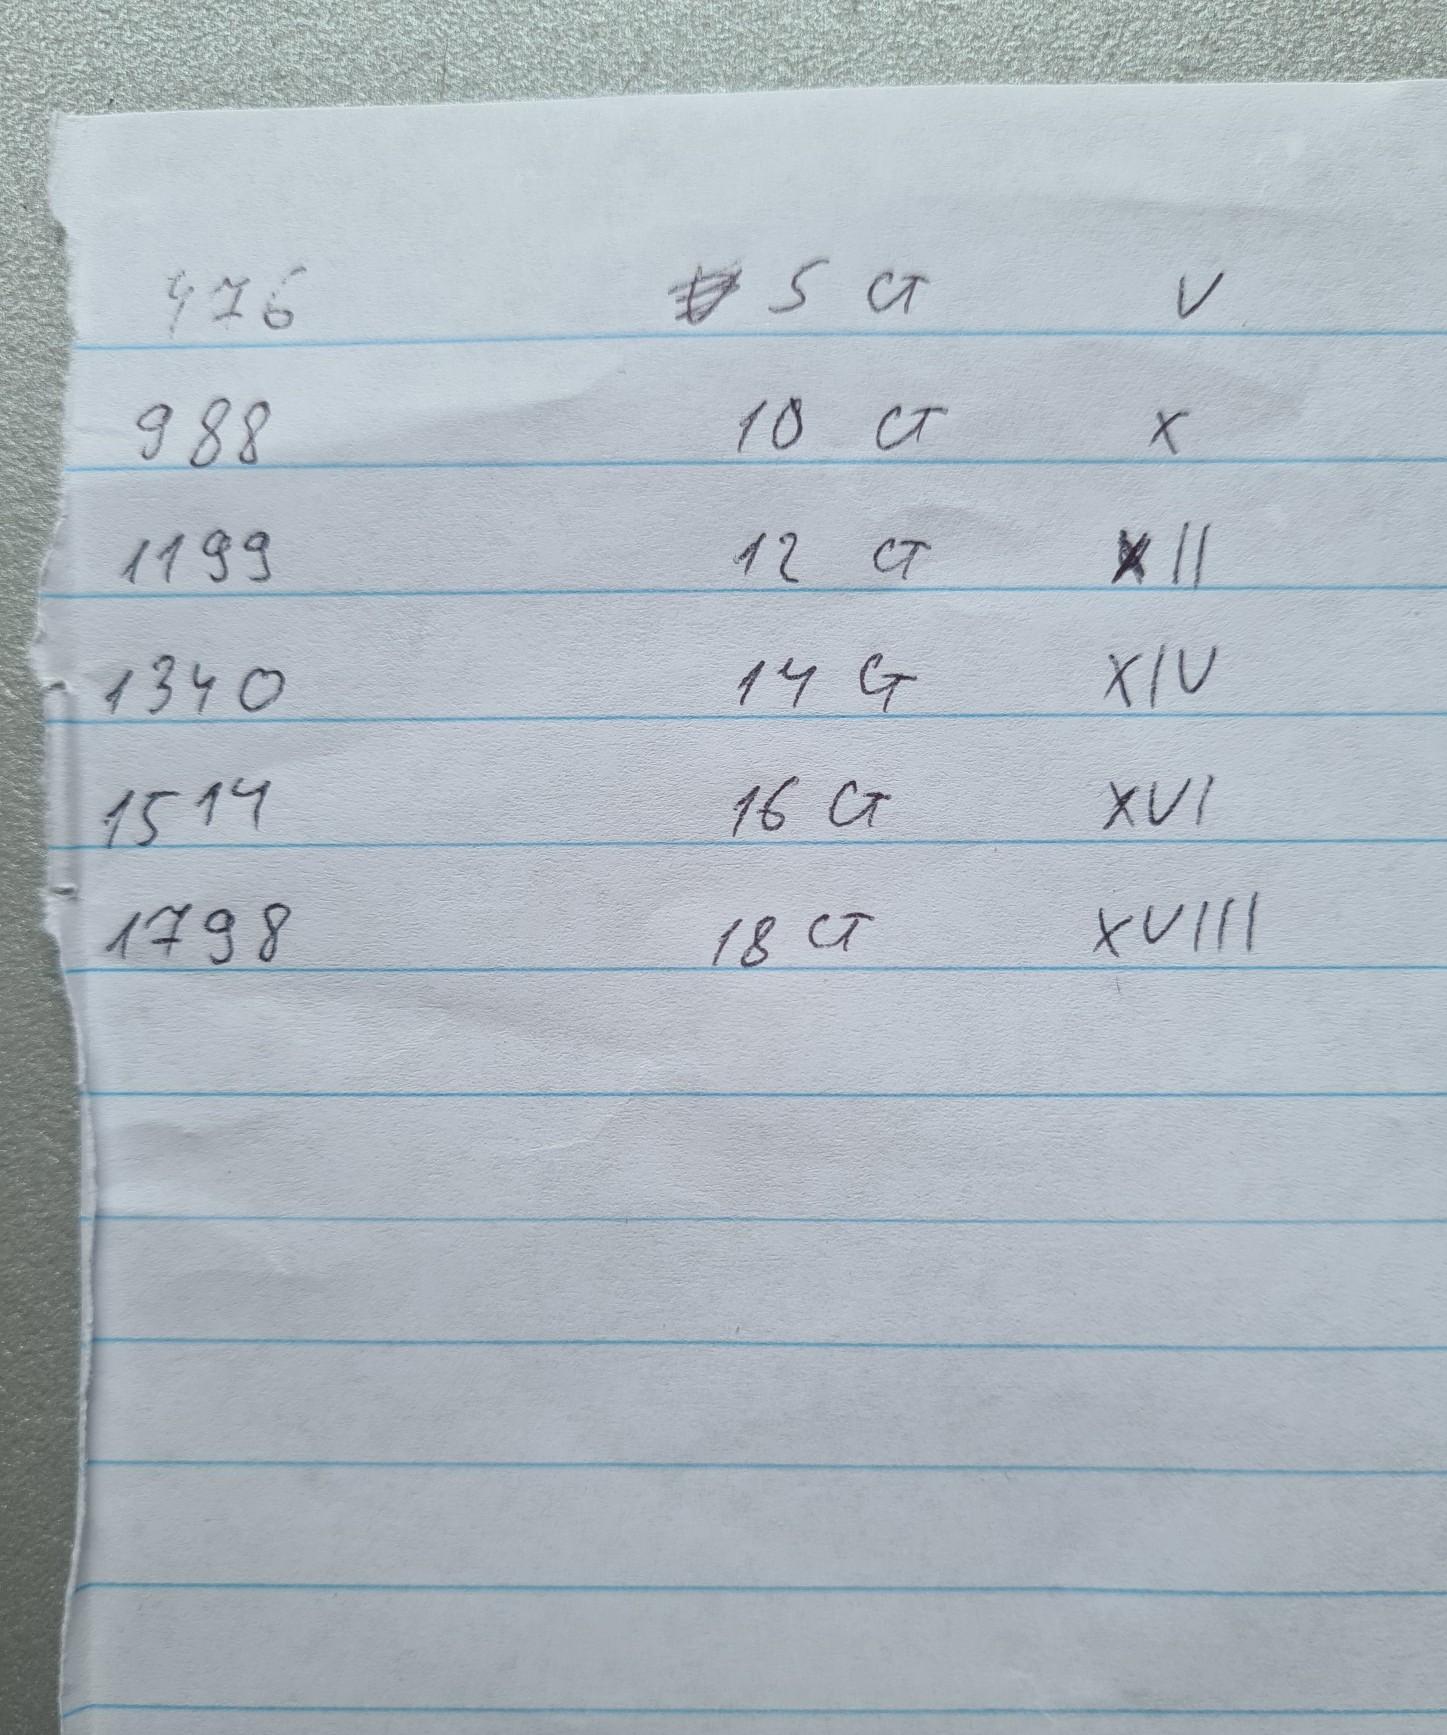 476 5 CT V
988 10 CT X
1199 12 CT XII
1340 14 CT XIV
1514 16 CT XVI
1798 18 CT XVIII